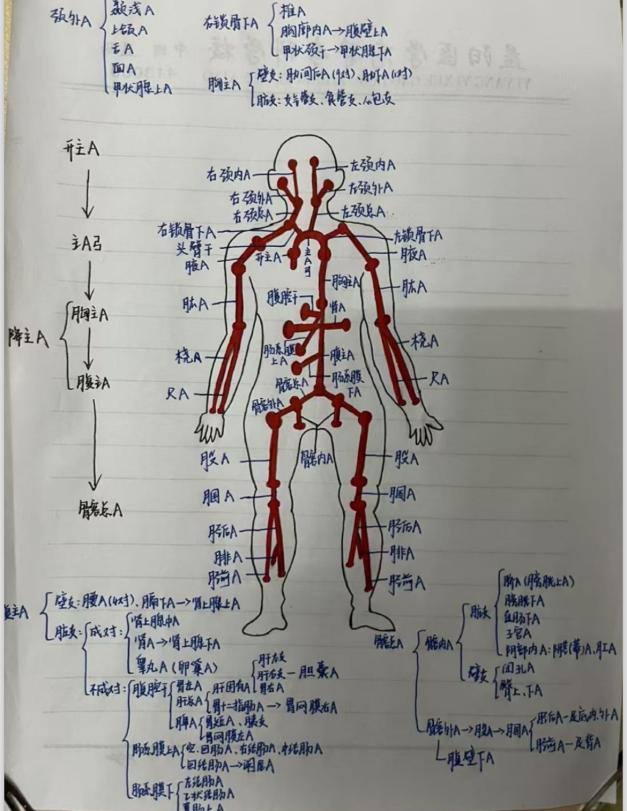 颈外A
颞浅A
上颌A
舌A
面A
甲状腺上A
右锁骨下A
椎A
胸廓内A→腹壁上A
甲状颈干→甲状腺下A
胸主A
壁支:肋间后A(9对)、肋下A(1对)
脏支:支气管支、食管支、心包支
升主A
主A弓
降主A
胸主A
腹主A
髂总A
右颈内A
左颈内A
右颈外A
左颈外A
右颈总A
左颈总A
右锁骨下A
左锁骨下A
头臂干
升主A
主A弓
腋A
腋A
胸主A
肱A
肱A
腹腔干
肾A
肠系膜上A
腹主A
肠系膜下A
桡A
桡A
尺A
尺A
髂总A
髂外A
髂内A
股A
股A
腘A
腘A
胫后A
胫后A
腓A
腓A
胫前A
胫前A
腹主A
壁支:腰A(4对)、膈下A→肾上腺上A
脏支:
成对:
肾上腺中A
肾A→肾上腺下A
睾丸A(卵巢A)
不成对:
腹腔干
胃左A
肝总A
肝固有A
肝左支
肝右支-胆囊A
胃右A
胃十二指肠A→胃网膜右A
脾A
胃短A、胰支
胃网膜左A
肠系膜上A
空、回肠A、右结肠A、中结肠A
回结肠A→阑尾A
肠系膜下
左结肠A
乙状结肠A
直肠上A
髂总A
髂内A
脏支
脐A(膀胱上A)
膀胱下A
直肠下A
子宫A
阴部内A:阴茎(蒂)A、肛A
壁支
闭孔A
臀上、下A
髂外A→股A→腘A
胫后A-足底内、外A
胫前A-足背A
腹壁下A